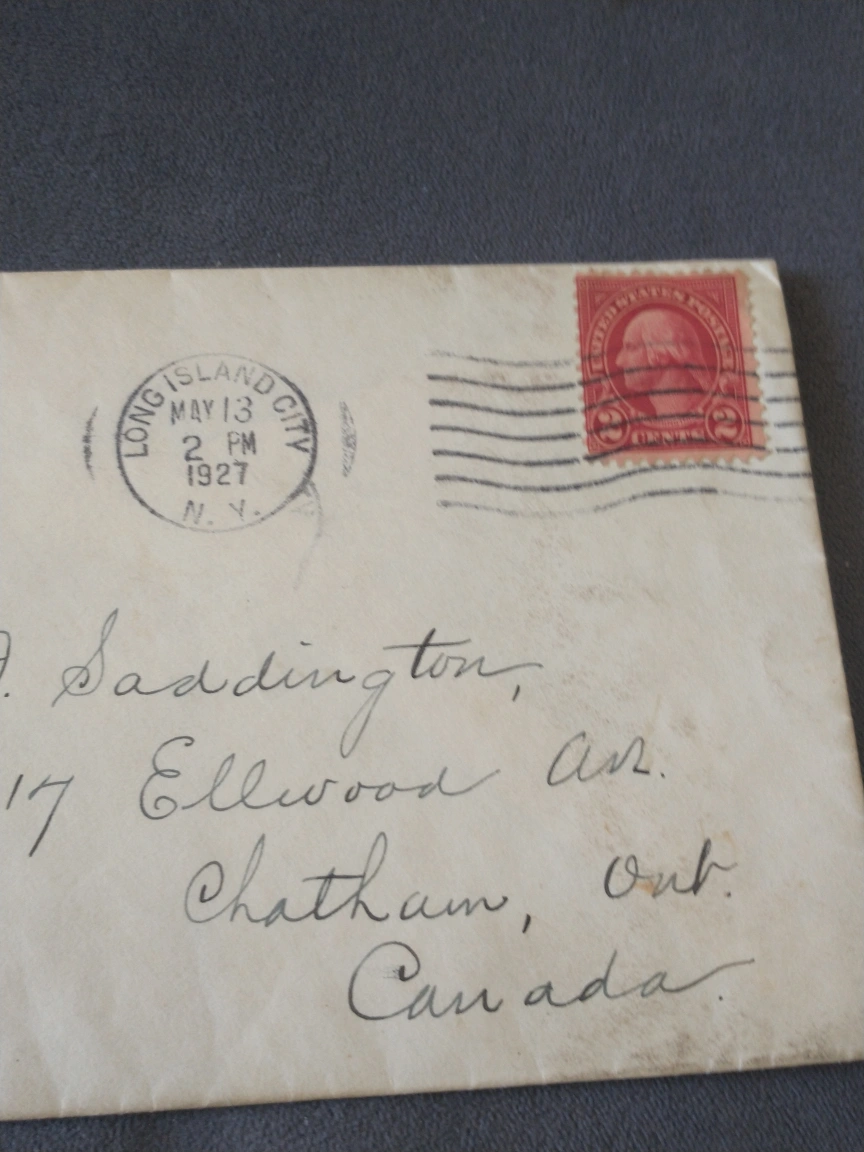 LONG ISLAND CITY
MAY 13
2 PM
1927
N. Y.
UNITED STATES POSTAGE
2 CENTS 2
. Saddington,
17 Ellwood Av.
Chatham, Ont.
Canada.